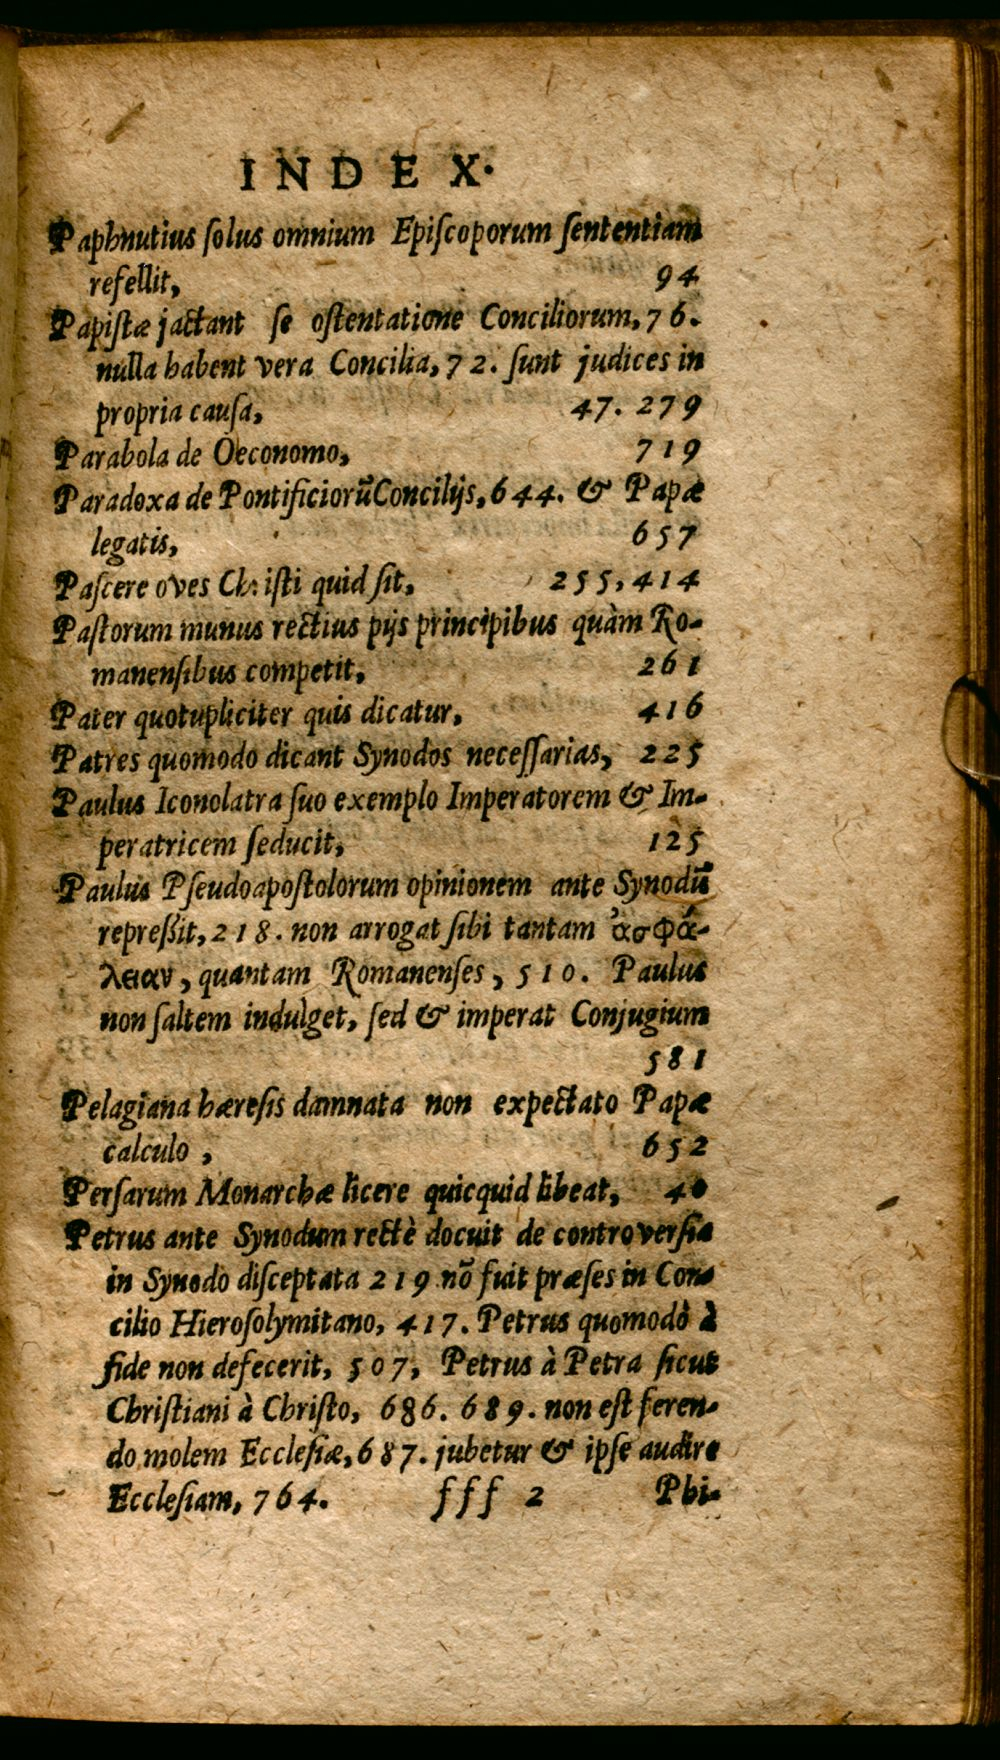 INDEX.
Paphnutius ſolus omnium Epiſcoporum ſententiam
refellit, 94
Papiſtæ jactant ſe oſtentatione Conciliorum, 76.
nulla habent vera Concilia, 72. ſunt judices in
propria cauſa, 47. 279
Parabola de Oeconomo, 719
Paradoxa de Pontificiorũ Concilijs, 644. & Papæ
legatis, 657
Paſcere oves Chriſti quid ſit, 255, 414
Paſtorum munus rectius pijs principibus quàm Ro-
manenſibus competit, 261
Pater quotupliciter quis dicatur, 416
Patres quomodo dicant Synodos neceſſarias, 225
Paulus Iconolatra ſuo exemplo Imperatorem & Im-
peratricem ſeducit, 125
Paulus Pſeudoapoſtolorum opinionem ante Synodũ
repreßit, 218. non arrogat ſibi tantam ἀσφά-
λειαν, quantam Romanenſes, 510. Paulus
non ſaltem indulget, ſed & imperat Conjugium
581
Pelagiana hæreſis damnata non expectato Papæ
calculo, 652
Perſarum Monarchæ licere quicquid libeat, 40
Petrus ante Synodum rectè docuit de controverſia
in Synodo diſceptata 219. nõ fuit præſes in Con-
cilio Hieroſolymitano, 417. Petrus quomodò à
fide non defecerit, 507, Petrus à Petra ſicut
Chriſtiani à Chriſto, 686. 689. non eſt feren-
do moleḿ Eccleſiæ, 687. jubetur & ipſe audire
Eccleſiam, 764. fff 2 Phi-